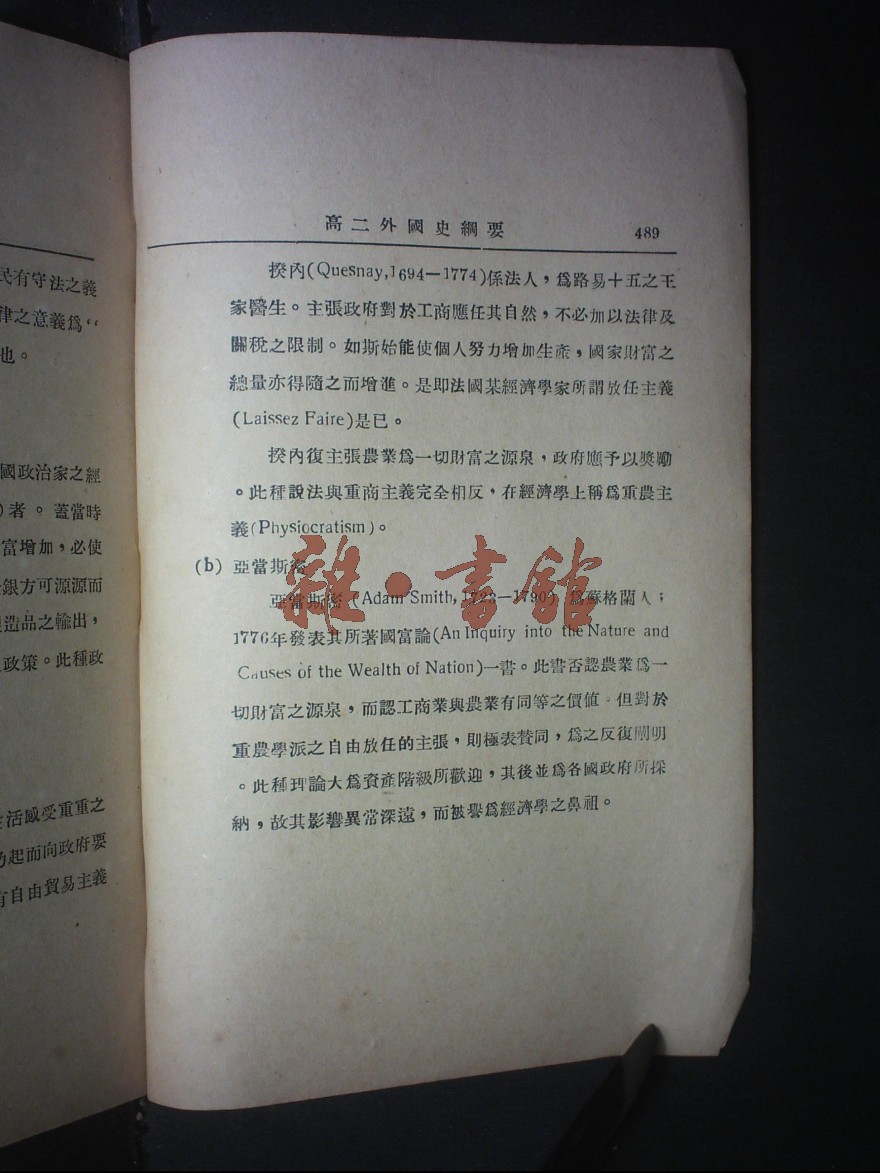 民有守法之義
律之意義爲“
也。
國政治家之經
)者。蓋當時
富增加，必使
銀方可源源而
造品之輸出，
政策。此種政
活感受重重之
乃起而向政府要
有自由貿易主義
高二外國史綱要 489
揆內(Quesnay,1694—1774)係法人，爲路易十五之王
家醫生。主張政府對於工商應任其自然，不必加以法律及
關稅之限制。如斯始能使個人努力增加生產，國家財富之
總量亦得隨之而增進。是即法國某經濟學家所謂放任主義
(Laissez Faire)是已。
揆內復主張農業爲一切財富之源泉，政府應予以獎勵
。此種說法與重商主義完全相反，在經濟學上稱爲重農主
義(Physiocratism)。
(b) 亞當斯密
亞當斯密 (Adam Smith, 1723—1790) 爲蘇格蘭人；
1776年發表其所著國富論(An Inquiry into the Nature and
Causes of the Wealth of Nation)一書。此書否認農業爲一
切財富之源泉，而認工商業與農業有同等之價值。但對於
重農學派之自由放任的主張，則極表贊同，爲之反復闡明
。此種理論大爲資產階級所歡迎，其後並爲各國政府所採
納，故其影響異常深遠，而被譽爲經濟學之鼻祖。
雜·書館